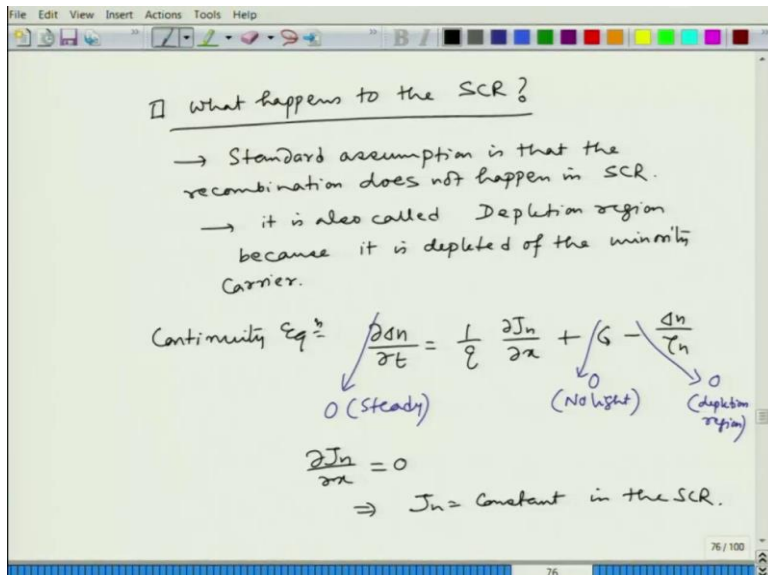 File Edit View Insert Actions Tools Help
B I
□ What happens to the SCR?
→ Standard assumption is that the
recombination does not happen in SCR.
→ it is also called Depletion region
because it is depleted of the minority
Carrier.
Continuity Eqⁿ= ∂Δn/∂t = 1/q ∂Jn/∂x + G − Δn/τn
0 (Steady) 0 (No light) 0 (depletion region)
∂Jn/∂x = 0
⇒ Jn = Constant in the SCR.
76 / 100
76